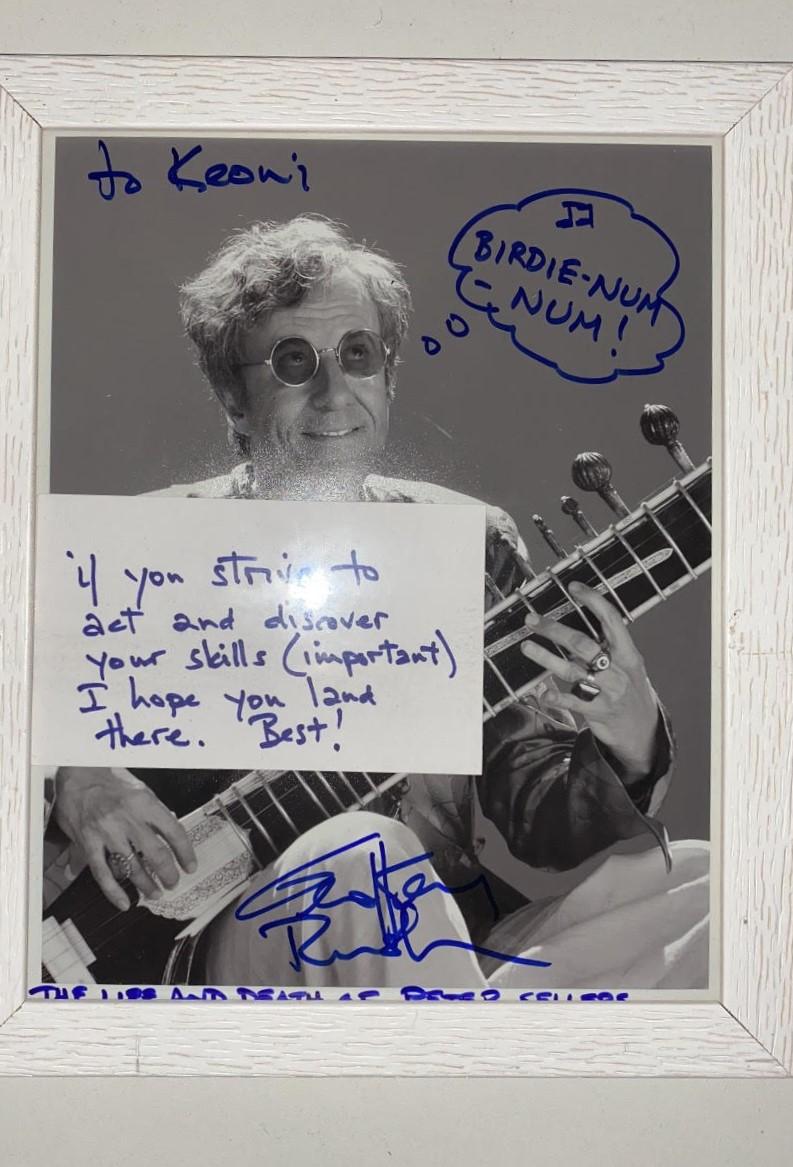 to Keoni
BIRDIE-NUM
- NUM!
if you strive to
act and discover
your skills (important)
I hope you land
there. Best!
Geoffrey
Rush
THE LIFE AND DEATH OF PETER SELLERS